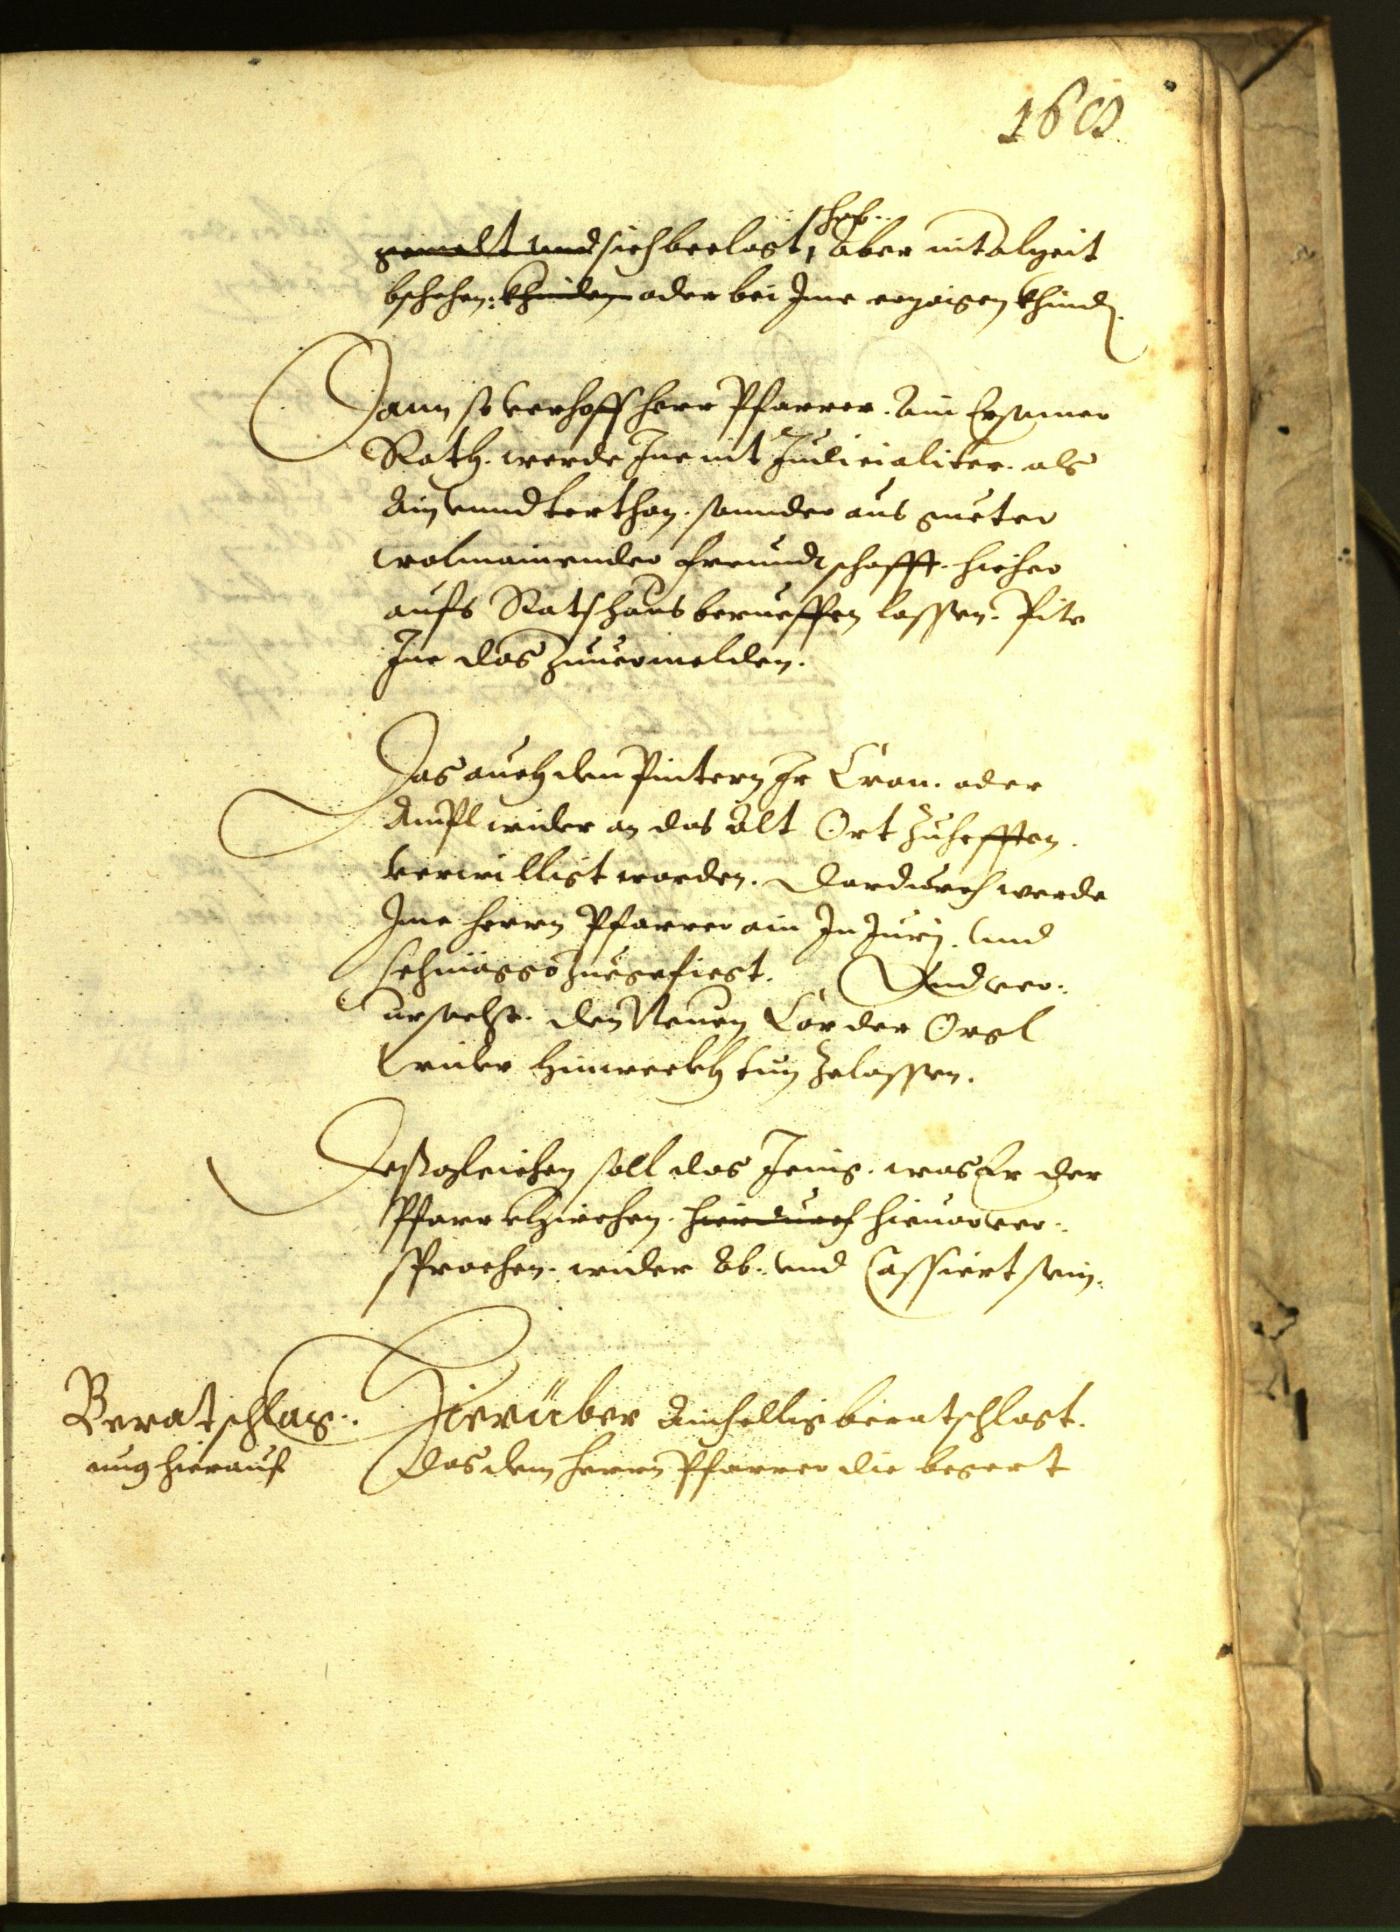 160
gemalt und sich beclagt, aber nit alzeit
bschehen: khinden oder bei Ime erzaigen khind.
Dann so verhoff herr Pfarrer. Ain Ersamer
Rath. werde Ine nit Judicialiter. als
Ain unndterthan. sonnder aus gueter
wolmainender freundtschafft. hieher
aufs Rathaus berueffen lassen. Pitt
Ine das zuuermelden.
Das auch den Pintern Ir Cron. oder
Ampl wider an das alt Ort zuhefften.
verwilligt worden. Dardurch werde
Ime herrn Pfarrer ain Injurj. und
zuegefiegt. Und ver-
ursacht. den Neuen Cor der Orgl
wider hinweckh tun zelassen.
Desgleichen soll das Jenig. was Er der
Pfarrkhirchen. hierdurch hieuor ver-
sprochen. wider ab. und Cassiert sein.
Beratschlag-
ung hierauf
Hierüber Ainhellig beratschlagt.
Das dem herrn Pfarrer die begert